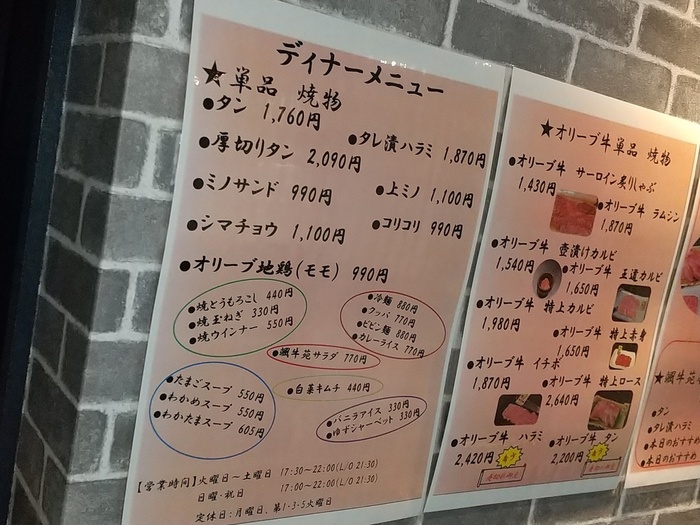 ディナーメニュー
★単品 焼物
●タン 1,760円
●厚切りタン 2,090円
●タレ漬ハラミ 1,870円
●ミノサンド 990円
●上ミノ 1,100円
●シマチョウ 1,100円
●コリコリ 990円
●オリーブ地鶏(モモ) 990円
●焼とうもろこし 440円
●焼玉ねぎ 330円
●焼ウインナー 550円
●冷麺 880円
●クッパ 770円
●ビビン麺 880円
●カレーライス 770円
●颯牛苑サラダ 770円
●たまごスープ 550円
●わかめスープ 550円
●わかたまスープ 605円
●白菜キムチ 440円
●バニラアイス 330円
●ゆずシャーベット 330円
【営業時間】火曜日~土曜日 17:30~22:00(L/O 21:30)
日曜・祝日 17:00~22:00(L/O 21:30)
定休日:月曜日、第1・3・5火曜日
★オリーブ牛単品 焼物
●オリーブ牛 サーロイン炙りしゃぶ
1,430円
●オリーブ牛 ラムシン
1,870円
●オリーブ牛 壺漬けカルビ
1,540円
●オリーブ牛 王道カルビ
1,650円
●オリーブ牛 特上カルビ
1,980円
●オリーブ牛 特上赤身
1,650円
●オリーブ牛 イチボ
1,870円
●オリーブ牛 特上ロース
2,640円
●オリーブ牛 ハラミ
2,420円
●オリーブ牛 タン
2,200円
★颯牛苑
●タン
●タレ漬ハラミ
●本日のおすすめ
●本日のおすすめ